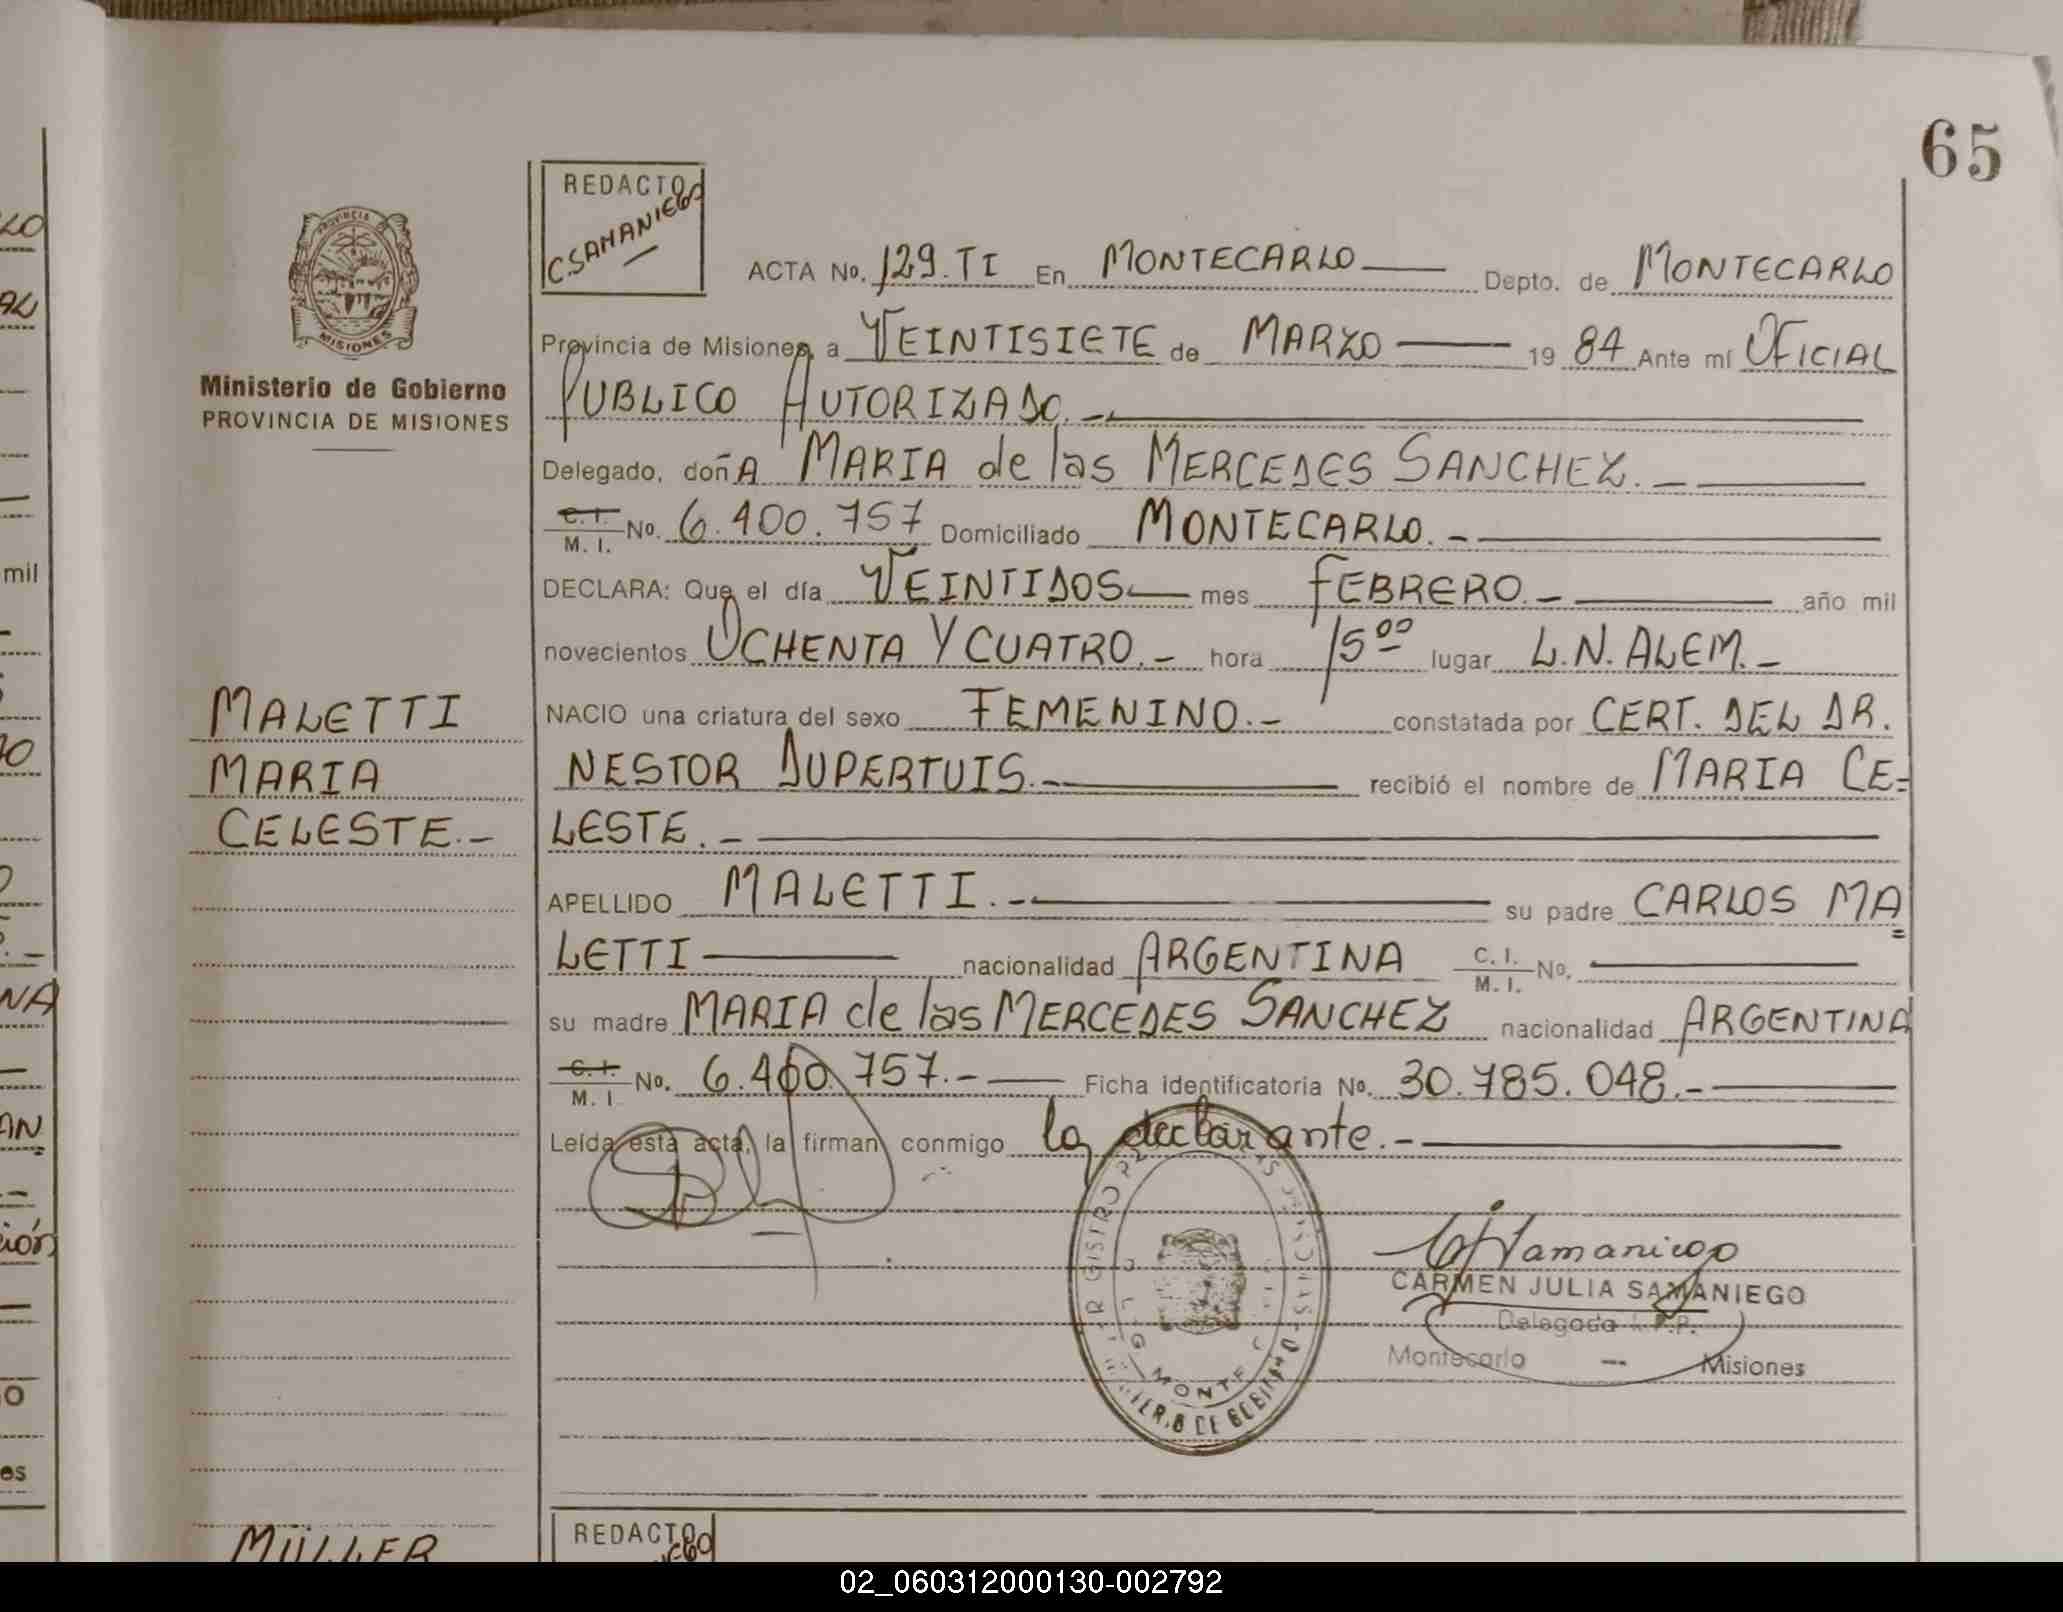 65
PROVINCIA
MISIONES
Ministerio de Gobierno
PROVINCIA DE MISIONES
MALETTI
MARIA
CELESTE.-
MÜLLER
REDACTO
CSAMANIEGO
ACTA No. 129.TI En MONTECARLO Depto. de MONTECARLO
Provincia de Misiones, a VEINTISIETE de MARZO 19 84 Ante mí OFICIAL
PUBLICO AUTORIZADO.-
Delegado, doñA MARIA de las MERCEDES SANCHEZ.-
C. I.
M. I. No. 6.400.757 Domiciliado MONTECARLO.-
DECLARA: Que el día VEINTIDOS mes FEBRERO.- año mil
novecientos OCHENTA Y CUATRO.- hora 15 00 lugar L.N. ALEM.-
NACIO una criatura del sexo FEMENINO.- constatada por CERT. DEL DR.
NESTOR DUPERTUIS.- recibió el nombre de MARIA CE=
LESTE.-
APELLIDO MALETTI.- su padre CARLOS MA=
LETTI nacionalidad ARGENTINA C. I.
M. I. No.
su madre MARIA de las MERCEDES SANCHEZ nacionalidad ARGENTINA
C. I.
M. I. No. 6.400.757.- Ficha identificatoria No. 30.785.048.-
Leída esta acta, la firman conmigo la declarante.-
CJSamaniego
CARMEN JULIA SAMANIEGO
Delegada R.P.P.
Montecarlo -- Misiones
REDACTO
02_060312000130-002792